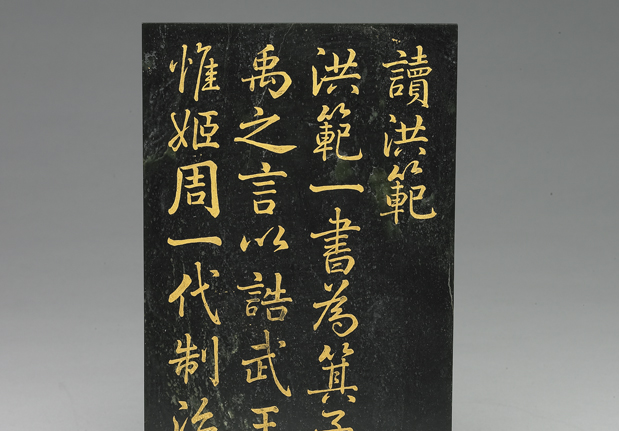 讀洪範
洪範一書為箕子
禹之言以誥武王
惟姬周一代制治